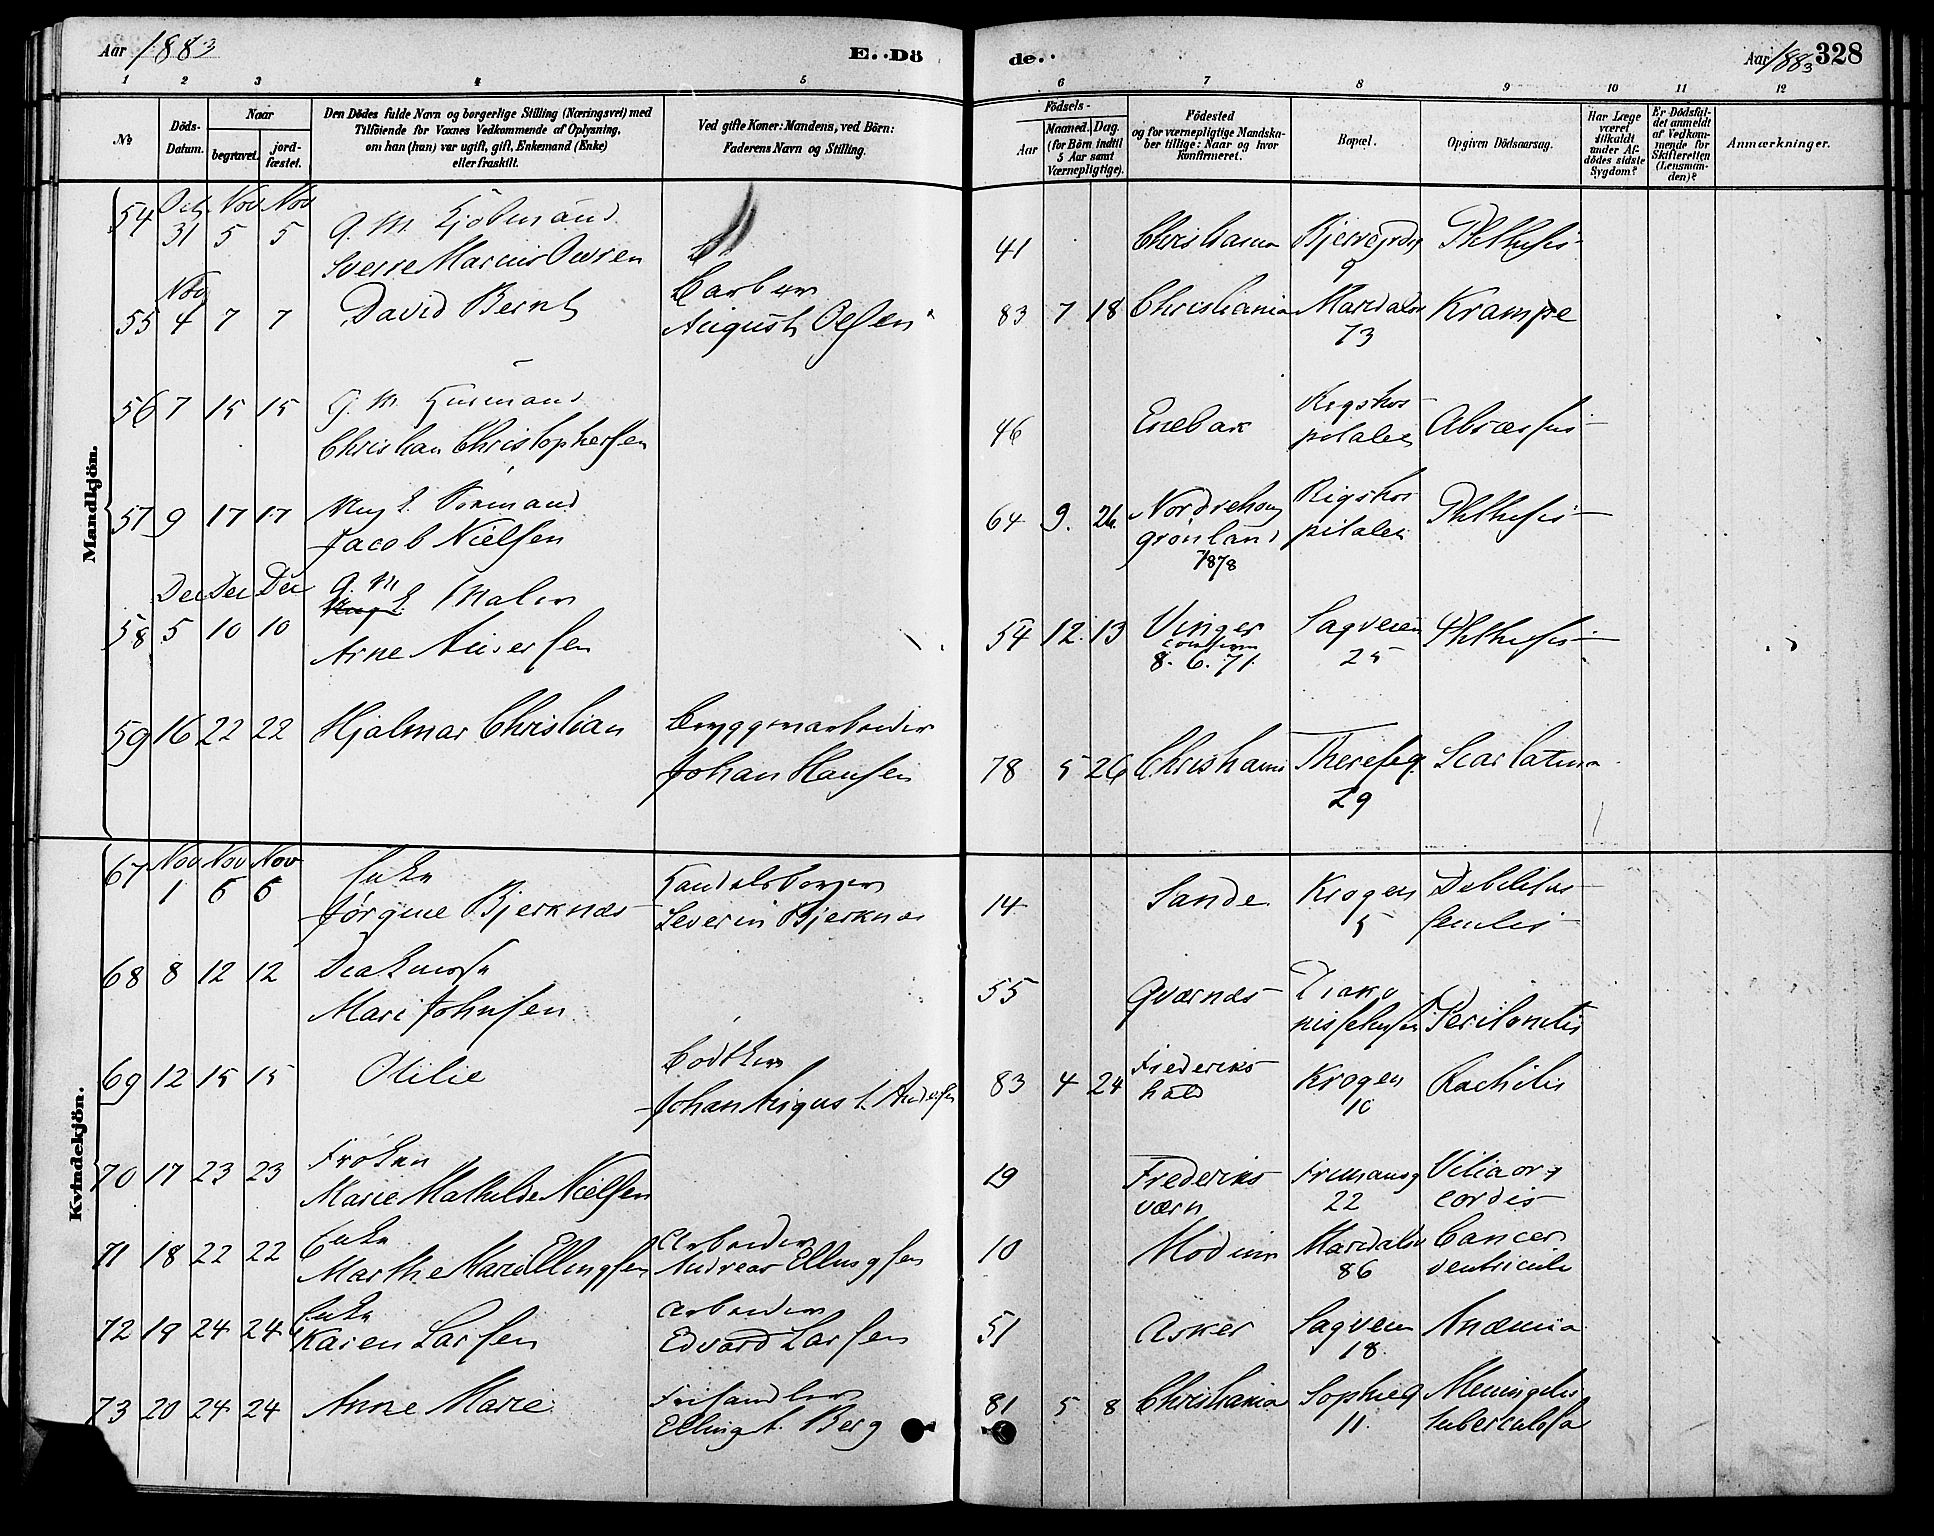 Aar 1883 E. Dö de. Aar 1883 328
1 2 3 4 5 6 7 8 9 10 11 12
No
Döds-Datum.
Naar
begravet.
jordfæstet.
Den Dödes fulde Navn og borgerlige Stilling (Næringsvei) med
Tilföiende for Voxnes Vedkommende af Oplysning,
om han (hun) var ugift, gift, Enkemand (Enke)
eller fraskilt.
Ved gifte Koner: Mandens, ved Börn:
Faderens Navn og Stilling.
Födsels-
Aar
Maaned. Dag.
(for Börn indtil
5 Aar samt
Værnepligtige).
Födested
og for værnepligtige Mandska-
ber tillige: Naar og hvor
konfirmeret.
Bopæl.
Opgiven Dödsaarsag.
Har Læge
været
tilkaldt
under Af-
dödes sidste
Sygdom?
Er Dödsfal-
det anmeldt
af Vedkom-
mende for
Skifteretten
(Lensman-
den)?
Anmærkninger.
Mandkjön.
54 Oct 31 Nov 5 Nov 5 G. M. Kjöbmand
Sverre Marius 41 Christiania 9 Phthisis
55 Nov 4 7 7 David Bernt August Olsen 83 7 18 Christiania Maridalsv 73 Krampe
56 7 15 15 G. M.
Christian Christophersen 46 Enebak Rigshos-
pitalet Abscessus
57 9 17 17
Jacob Nielsen 64 9. 26. Nordrehoug
Grönland
1878 Rigshos
pitalet Phthisis
58 Dec 5 Dec 10 Dec 10 G. M. Maler
Arne Andersen 54 12. 13 Vinger
confirm
8. 6. 71. Sagveien
25 Phthisis
59 16 22 22 Hjalmar Christian Bryggearbeider
Johan Hansen 78 5 26 Christiania Thereseg.
29 Scarlatina
Kvindekjön.
67 Nov 1 Nov 6 Nov 6 Enke
Jörgine Bjerknæs Handelsborger
Severin Bjerknæs 14 Sande Krogen
5 Debilitas
senilis
68 8 12 12 Diakonisse
Mari Johnsen 55 Qværnes Diako
nissehuset Peritonitis
69 12 15 15 Otilie Bödker
Johan August Andersen 83 4 24 Frederiks
hald Krogen
10 Rachitis
70 17 23 23 Fröken
Marie Mathilde Nielsen 19 Frederiks
værn Frimansg
22 Vitia org
cordis
71 18 22 22 Enke
Marthe Marie Ellingsen Arbeider
Andreas Ellingsen 10 Modum Maridalsv
86 Cancer
ventriculi
72 19 24 24 Enke
Karen Larsen Arbeider
Edvard Larsen 51 Asker Sagveien
18. Anæmia
73 20 24 24 Anne Marie
Elling A. Berg 81 5 8 Christiania Sophieg
11. Meningitis
tuberculosa